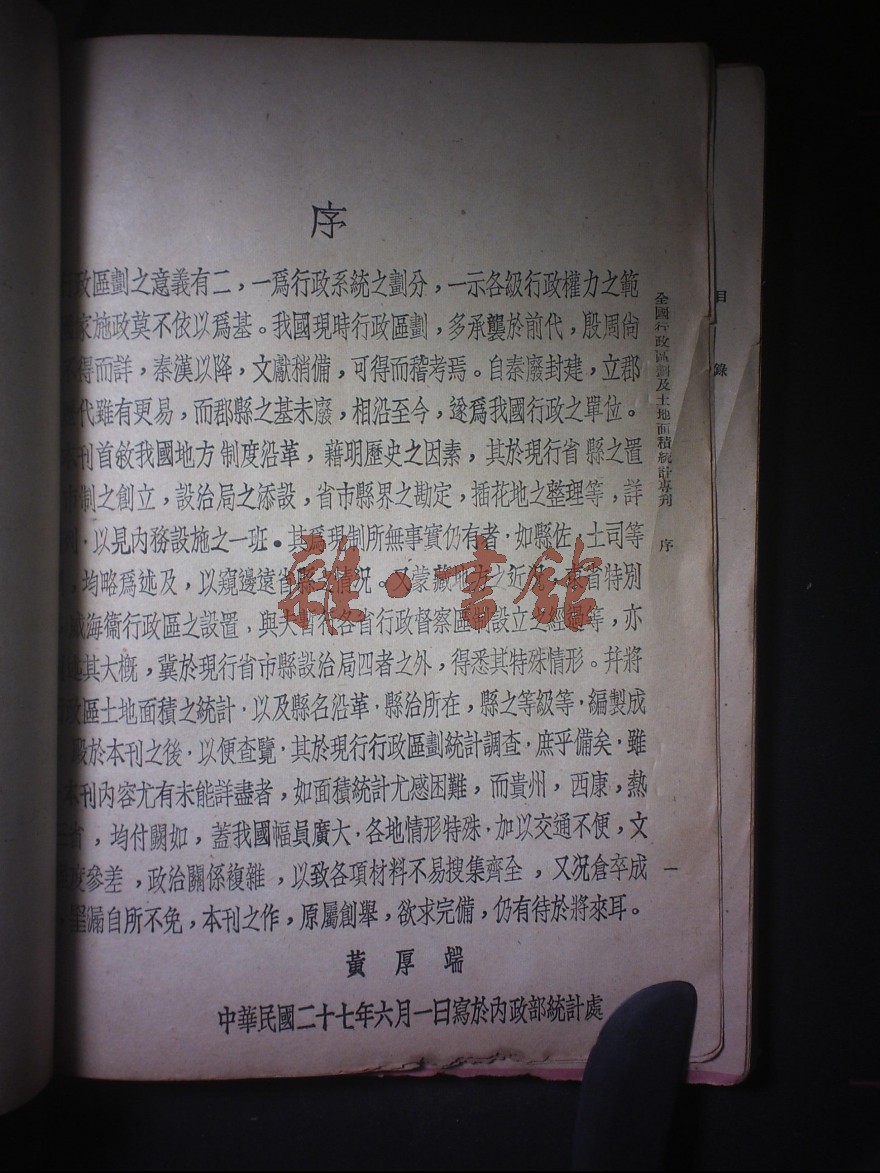 序
政區劃之意義有二，一爲行政系統之劃分，一示各級行政權力之範
家施政莫不依以爲基。我國現時行政區劃，多承襲於前代，殷周尙
得而詳，秦漢以降，文獻稍備，可得而稽考焉。自秦廢封建，立郡
代雖有更易，而郡縣之基未廢，相沿至今，遂爲我國行政之單位。
刊首敘我國地方制度沿革，藉明歷史之因素，其於現行省縣之置
制之創立，設治局之添設，省市縣界之勘定，插花地之整理等，詳
，以見內務設施之一班。其爲現制所無事實仍有者，如縣佐，土司等
，均略爲述及，以窺邊遠省縣之情況。又蒙藏地方之近況，東省特別
海衞行政區之設置，與大曾行各省行政督察區制設立之經過等，亦
其大槪，冀於現行省市縣設治局四者之外，得悉其特殊情形。幷將
政區土地面積之統計，以及縣名沿革，縣治所在，縣之等級等，編製成
殿於本刊之後，以便查覽，其於現行行政區劃統計調查，庶乎備矣，雖
本刊內容尤有未能詳盡者，如面積統計尤感困難，而貴州，西康，熱
省，均付闕如，蓋我國幅員廣大，各地情形特殊，加以交通不便，文
度參差，政治關係複雜，以致各項材料不易搜集齊全，又況倉卒成
漏自所不免，本刊之作，原屬創舉，欲求完備，仍有待於將來耳。
黃厚端
中華民國二十七年六月一日寫於內政部統計處
全國行政區劃及土地面積統計專刊　序
一
目錄
雜·書館